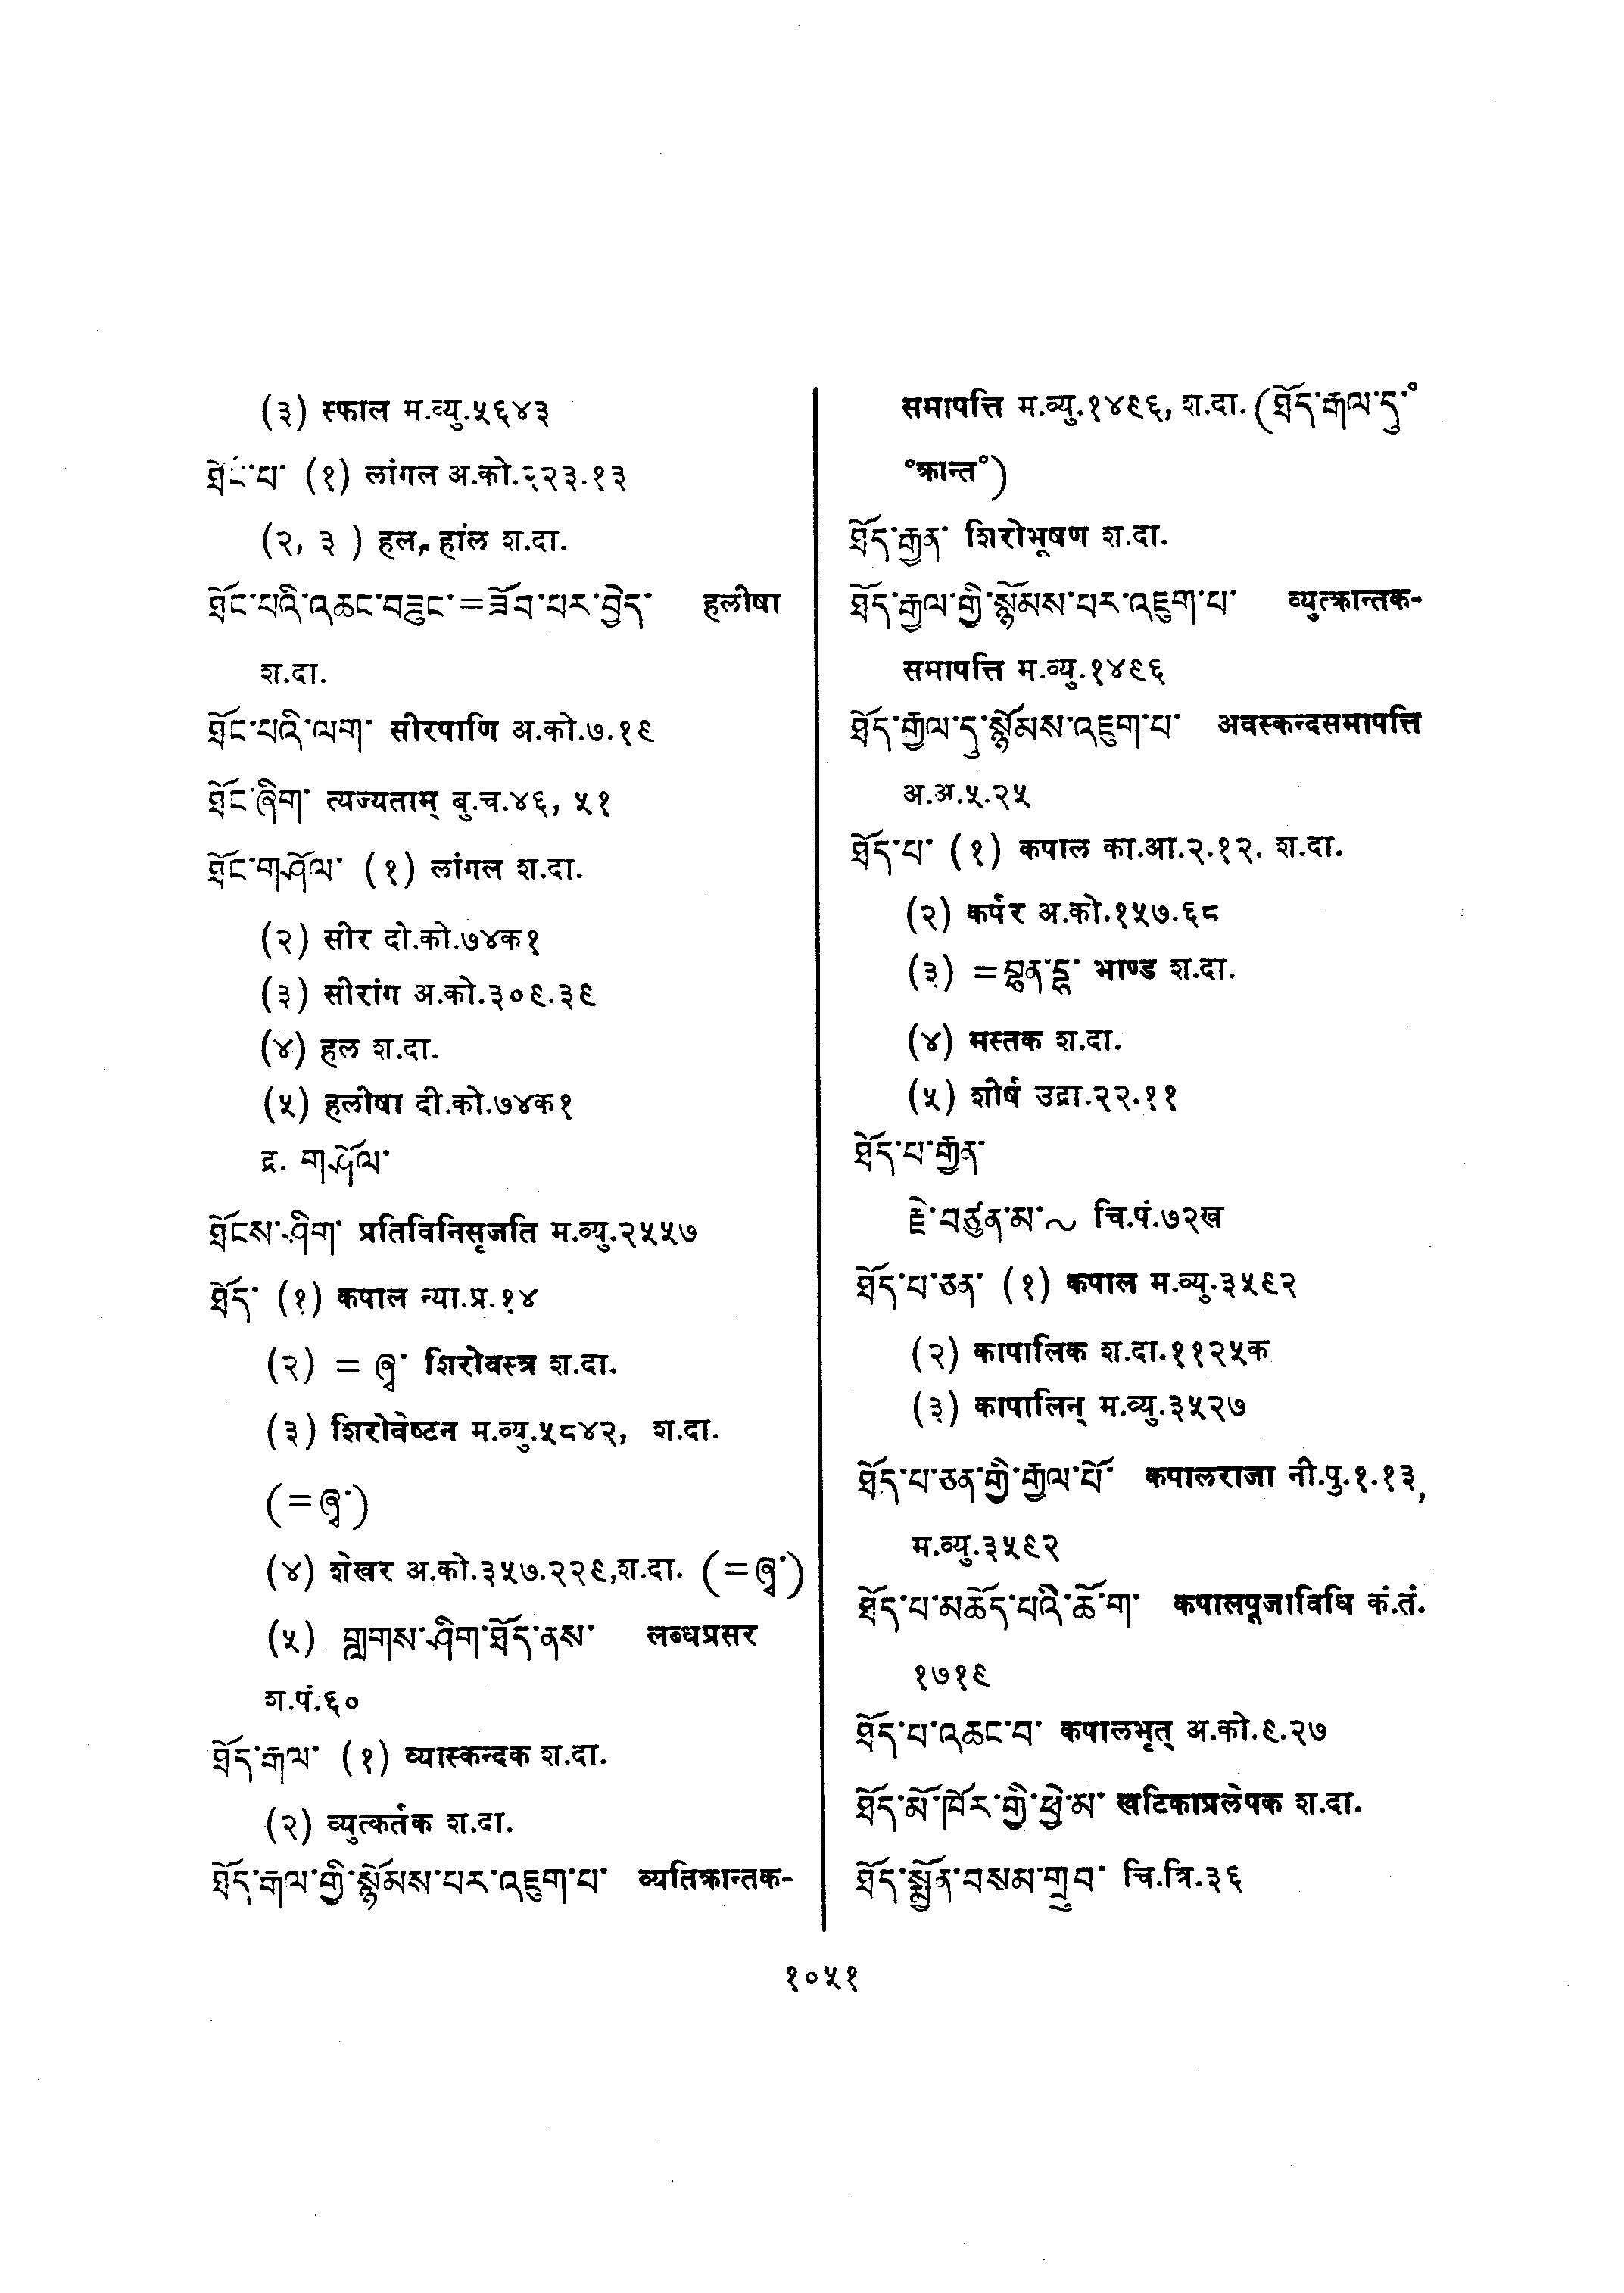 (३) स्फाल म.व्यु.५६४३
ཐོང་པ་ (१) लांगल अ.को.२२३.१३
(२, ३ ) हल, हांल श.दा.
ཐོང་པའི་འཆང་བཟུང་=ཟོབ་པར་བྱེད་ हलीषा
श.दा.
ཐོང་པའི་ལག་ सीरपाणि अ.को.७.१९
ཐོང་ཞིག་ त्यज्यताम् बु.च.४६, ५१
ཐོང་གཤོལ་ (१) लांगल श.दा.
(२) सीर दो.को.७४क१
(३) सीरांग अ.को.३०९.३९
(४) हल श.दा.
(५) हलीषा दी.को.७४क१
द्र. གཤོལ་
ཐོངས་ཤིག་ प्रतिविनिसृजति म.व्यु.२५५७
ཐོད་ (१) कपाल न्या.प्र.१४
(२) = ཞྭ་ शिरोवस्त्र श.दा.
(३) शिरोवेष्टन म.व्यु.५८४२, श.दा.
(=ཞྭ་)
(४) शेखर अ.को.३५७.२२९,श.दा. (=ཞྭ་)
(५) གླགས་ཤིག་ཐོད་ནས་ लब्धप्रसर
श.पं.६०
ཐོད་རྒལ་ (१) व्यास्कन्दक श.दा.
(२) व्युत्कर्तक श.दा.
ཐོད་རྒལ་གྱི་སྙོམས་པར་འཇུག་པ་ व्यतिक्रान्तक-
समापत्ति म.व्यु.१४९६, श.दा. (ཐོད་རྒལ་དུ་°
°क्रान्त°)
ཐོད་རྒྱན་ शिरोभूषण श.दा.
ཐོད་རྒྱལ་གྱི་སྙོམས་པར་འཇུག་པ་ व्युत्क्रान्तक-
समापत्ति म.व्यु.१४९६
ཐོད་རྒྱལ་དུ་སྙོམས་འཇུག་པ་ अवस्कन्दसमापत्ति
अ.अ.५.२५
ཐོད་པ་ (१) कपाल का.आ.२.१२. श.दा.
(२) कर्पर अ.को.१५७.६८
(३) = भाण्ड श.दा.
(४) मस्तक श.दा.
(५) शीर्ष उद्रा.२२.११
ཐོད་པ་རྒྱན་
རྗེ་བཙུན་མ་~ चि.पं.७२ख
ཐོད་པ་ཅན་ (१) कपाल म.व्यु.३५९२
(२) कापालिक श.दा.११२५क
(३) कापालिन् म.व्यु.३५२७
ཐོད་པ་ཅན་གྱི་རྒྱལ་པོ་ कपालराजा नी.पु.१.१३,
म.व्यु.३५९२
ཐོད་པ་མཆོད་པའི་ཆོ་ག་ कपालपूजाविधि कं.तं.
१७१९
ཐོད་པ་འཆང་བ་ कपालभृत् अ.को.९.२७
ཐོད་མོ་ཁོར་གྱི་ཕྱེ་མ་ खटिकाप्रलेपक श.दा.
ཐོད་སྨྱོན་བསམ་གྲུབ་ चि.त्रि.३६
१०५१